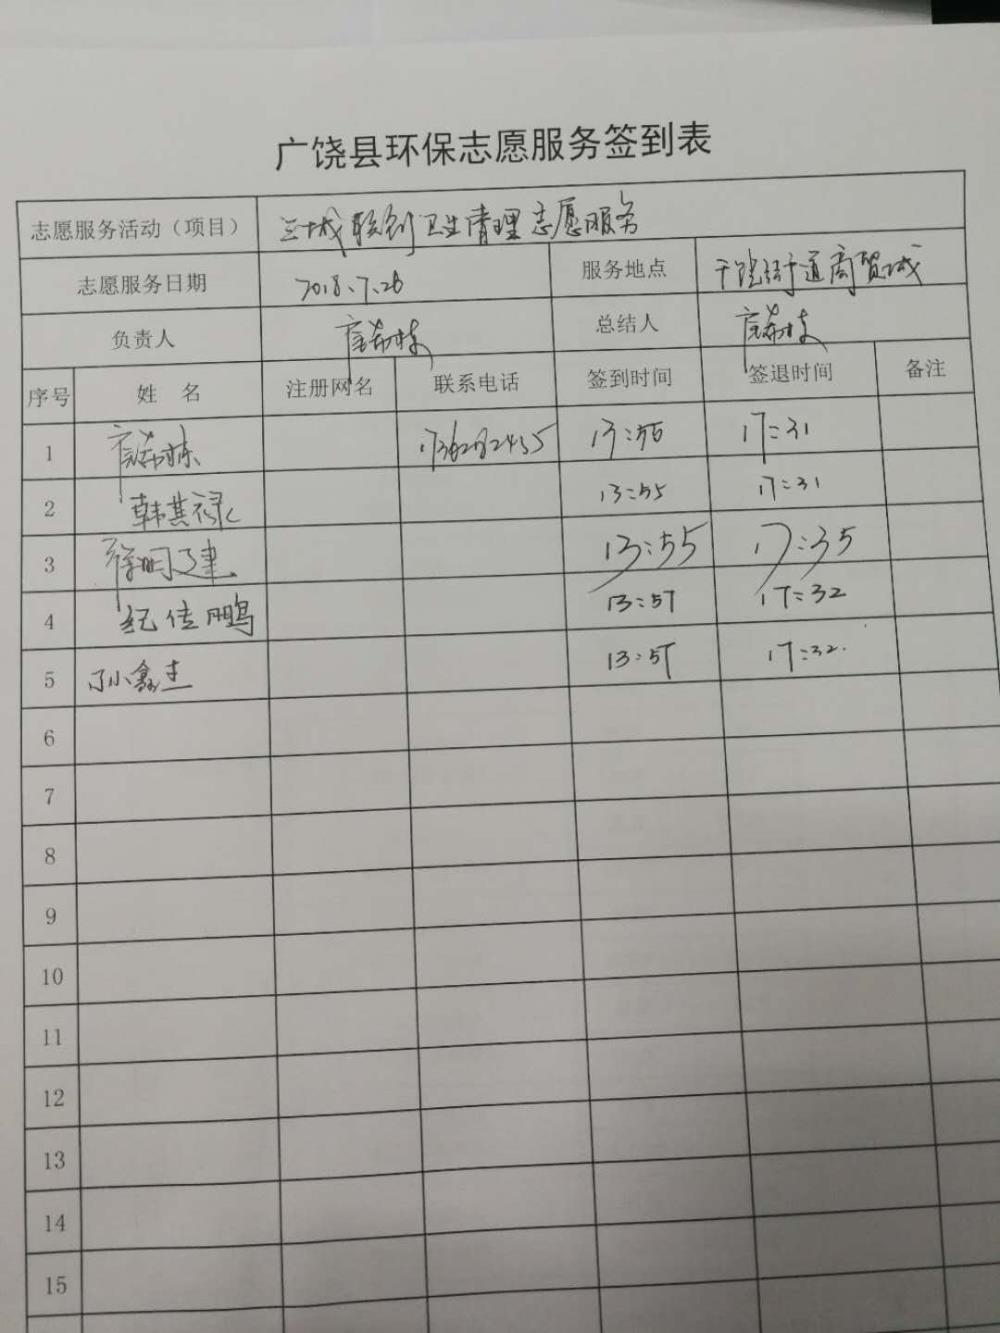 广饶县环保志愿服务签到表
志愿服务活动（项目） 三城联创卫生清理志愿服务
志愿服务日期 2018.7.26 服务地点 广饶街道商贸城
负责人 总结人
序号 姓 名 注册网名 联系电话 签到时间 签退时间 备注
1 13:56 17:31
2 韩其禄 13:55 17:31
3 徐明建 13:55 17:35
4 纪传鹏 13:57 17:32
5 孙鑫圭 13:57 17:32.
6
7
8
9
10
11
12
13
14
15